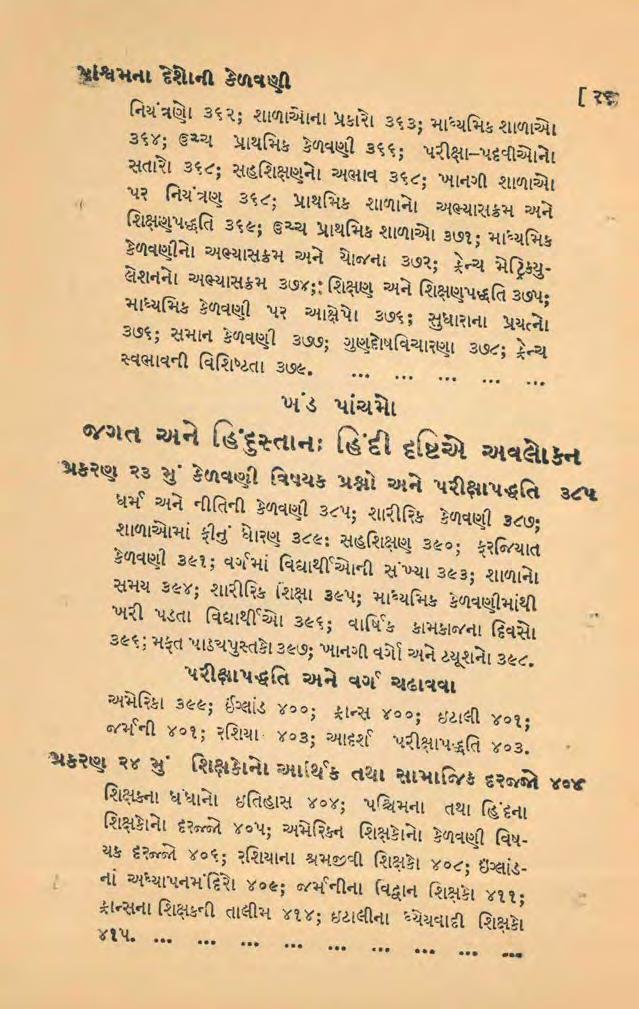 પશ્ચિમના દેશોની કેળવણી
[ ૨૯
નિયંત્રણો ૩૬૨; શાળાઓના પ્રકારો ૩૬૩; માધ્યમિક શાળાઓ
૩૬૪; ઉચ્ચ પ્રાથમિક કેળવણી ૩૬૬; પરીક્ષા–પદવીઓનો
સતારો ૩૬૮; સહશિક્ષણનો અભાવ ૩૬૮; ખાનગી શાળાઓ
પર નિયંત્રણ ૩૬૮; પ્રાથમિક શાળાનો અભ્યાસક્રમ અને
શિક્ષણપદ્ધતિ ૩૬૯; ઉચ્ચ પ્રાથમિક શાળાઓ ૩૭૧; માધ્યમિક
કેળવણીનો અભ્યાસક્રમ અને યોજના ૩૭૨; ફ્રેન્ચ મેટ્રિક્યુ-
લેશનનો અભ્યાસક્રમ ૩૭૪;: શિક્ષણ અને શિક્ષણપદ્ધતિ ૩૭૫;
માધ્યમિક કેળવણી પર આક્ષેપો ૩૭૬; સુધારાના પ્રયત્નો
૩૭૬; સમાન કેળવણી ૩૭૭; ગુણદોષવિચારણા ૩૭૮; ફ્રેન્ચ
સ્વભાવની વિશિષ્ટતા ૩૭૯. ... ... ... ... ...
ખંડ પાંચમો
જગત અને હિંદુસ્તાનઃ હિંદી દૃષ્ટિએ અવલોકન
પ્રકરણ ૨૩ મું કેળવણી વિષયક પ્રશ્નો અને પરીક્ષાપદ્ધતિ ૩૮૫
ધર્મ અને નીતિની કેળવણી ૩૮૫; શારીરિક કેળવણી ૩૮૭;
શાળાઓમાં ફીનું ધોરણ ૩૮૯: સહશિક્ષણ ૩૯૦; ફરજિયાત
કેળવણી ૩૯૧; વર્ગમાં વિદ્યાર્થીઓની સંખ્યા ૩૯૩; શાળાનો
સમય ૩૯૪; શારીરિક શિક્ષા ૩૯૫; માધ્યમિક કેળવણીમાંથી
ખરી પડતા વિદ્યાર્થીઓ ૩૯૬; વાર્ષિક કામકાજના દિવસો
૩૯૬; મફત પાઠ્યપુસ્તકો ૩૯૭; ખાનગી વર્ગો અને ટ્યૂશનો ૩૯૮.
પરીક્ષાપદ્ધતિ અને વર્ગ ચઢાવવા
અમેરિકા ૩૯૯; ઈંગ્લાંડ ૪૦૦; ફ્રાન્સ ૪૦૦; ઇટાલી ૪૦૧;
જર્મની ૪૦૧; રશિયા ૪૦૩; આદર્શ પરીક્ષાપદ્ધતિ ૪૦૩.
પ્રકરણ ૨૪ મું શિક્ષકોનો આર્થિક તથા સામાજિક દરજ્જો ૪૦૪
શિક્ષકના ધંધાનો ઇતિહાસ ૪૦૪; પશ્ચિમના તથા હિંદના
શિક્ષકોનો દરજ્જો ૪૦૫; અમેરિકન શિક્ષકોનો કેળવણી વિષ-
યક દરજ્જો ૪૦૬; રશિયાના શ્રમજીવી શિક્ષકો ૪૦૮; ઇંગ્લાંડ-
નાં અધ્યાપનમંદિરો ૪૦૯; જર્મનીના વિદ્વાન શિક્ષકો ૪૧૧;
ફ્રાન્સના શિક્ષકની તાલીમ ૪૧૪; ઇટાલીના ધ્યેયવાદી શિક્ષકો
૪૧૫. ... ... ... ... ... ... ... ... ...